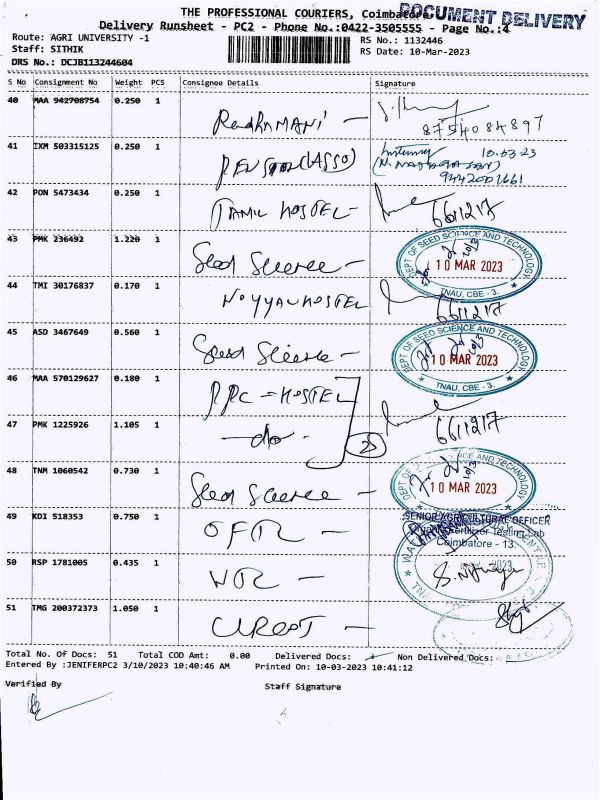 THE PROFESSIONAL COURIERS, Coimbatore
DOCUMENT DELIVERY
Delivery Runsheet - PC2 - Phone No.:0422-3505555 - Page No.:4
Route: AGRI UNIVERSITY -1
RS No.: 1132446
Staff: SITHIK
RS Date: 10-Mar-2023
DRS No.: DCJB113244604
S No Consignment No Weight PCS Consignee Details Signature
40 MAA 942708754 0.250 1
8754084897
41 IXM 503315125 0.250 1
10.03.23
9442001661
42 PON 5473434 0.250 1 TAMIL HOSTEL - 6611217
43 PMK 236492 1.220 1 Seed Science -
DEPT OF SEED SCIENCE AND TECHNOLOGY
10 MAR 2023
TNAU, CBE - 3.
44 TMI 30176837 0.170 1 NOYYAL HOSTEL
6611217
45 ASD 3467649 0.560 1 Seed Science -
DEPT OF SEED SCIENCE AND TECHNOLOGY
10 MAR 2023
TNAU, CBE - 3.
46 MAA 570129627 0.180 1 PPC - HOSTEL
47 PMK 1225926 1.105 1 -do- 2 6611217
48 TNM 1060542 0.730 1 Seed Science -
DEPT OF SEED SCIENCE AND TECHNOLOGY
10 MAR 2023
49 KDI 518353 0.750 1
SENIOR AGRICULTURAL OFFICER
Fertilizer Testing Lab
Coimbatore - 13.
50 RSP 1781005 0.435 1
2023
51 TMG 200372373 1.050 1
Total No. Of Docs: 51 Total COD Amt: 0.00 Delivered Docs: Non Delivered Docs:
Entered By :JENIFERPC2 3/10/2023 10:40:46 AM Printed On: 10-03-2023 10:41:12
Verified By
Staff Signature